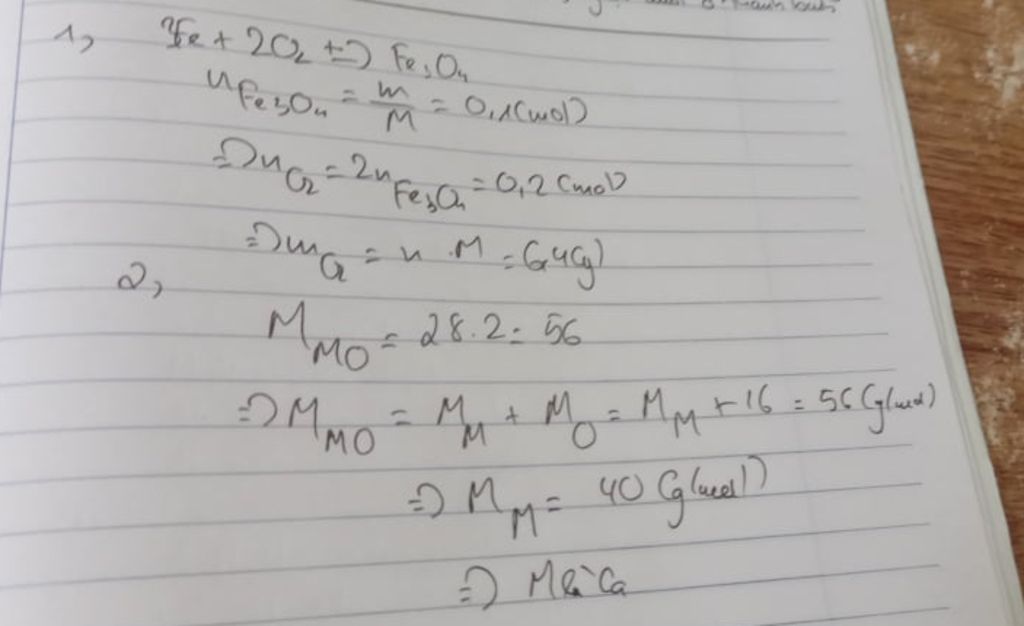 1, 3Fe + 2O2 => Fe3O4
nFe3O4 = m/M = 0,1(mol)
=> nO2 = 2nFe3O4 = 0,2 (mol)
=> mO2 = n . M = 6,4(g)
2,
MMO = 28.2 = 56
=> MMO = MM + MO = MM + 16 = 56 (g/mol)
=> MM = 40 (g/mol)
=> M là Ca